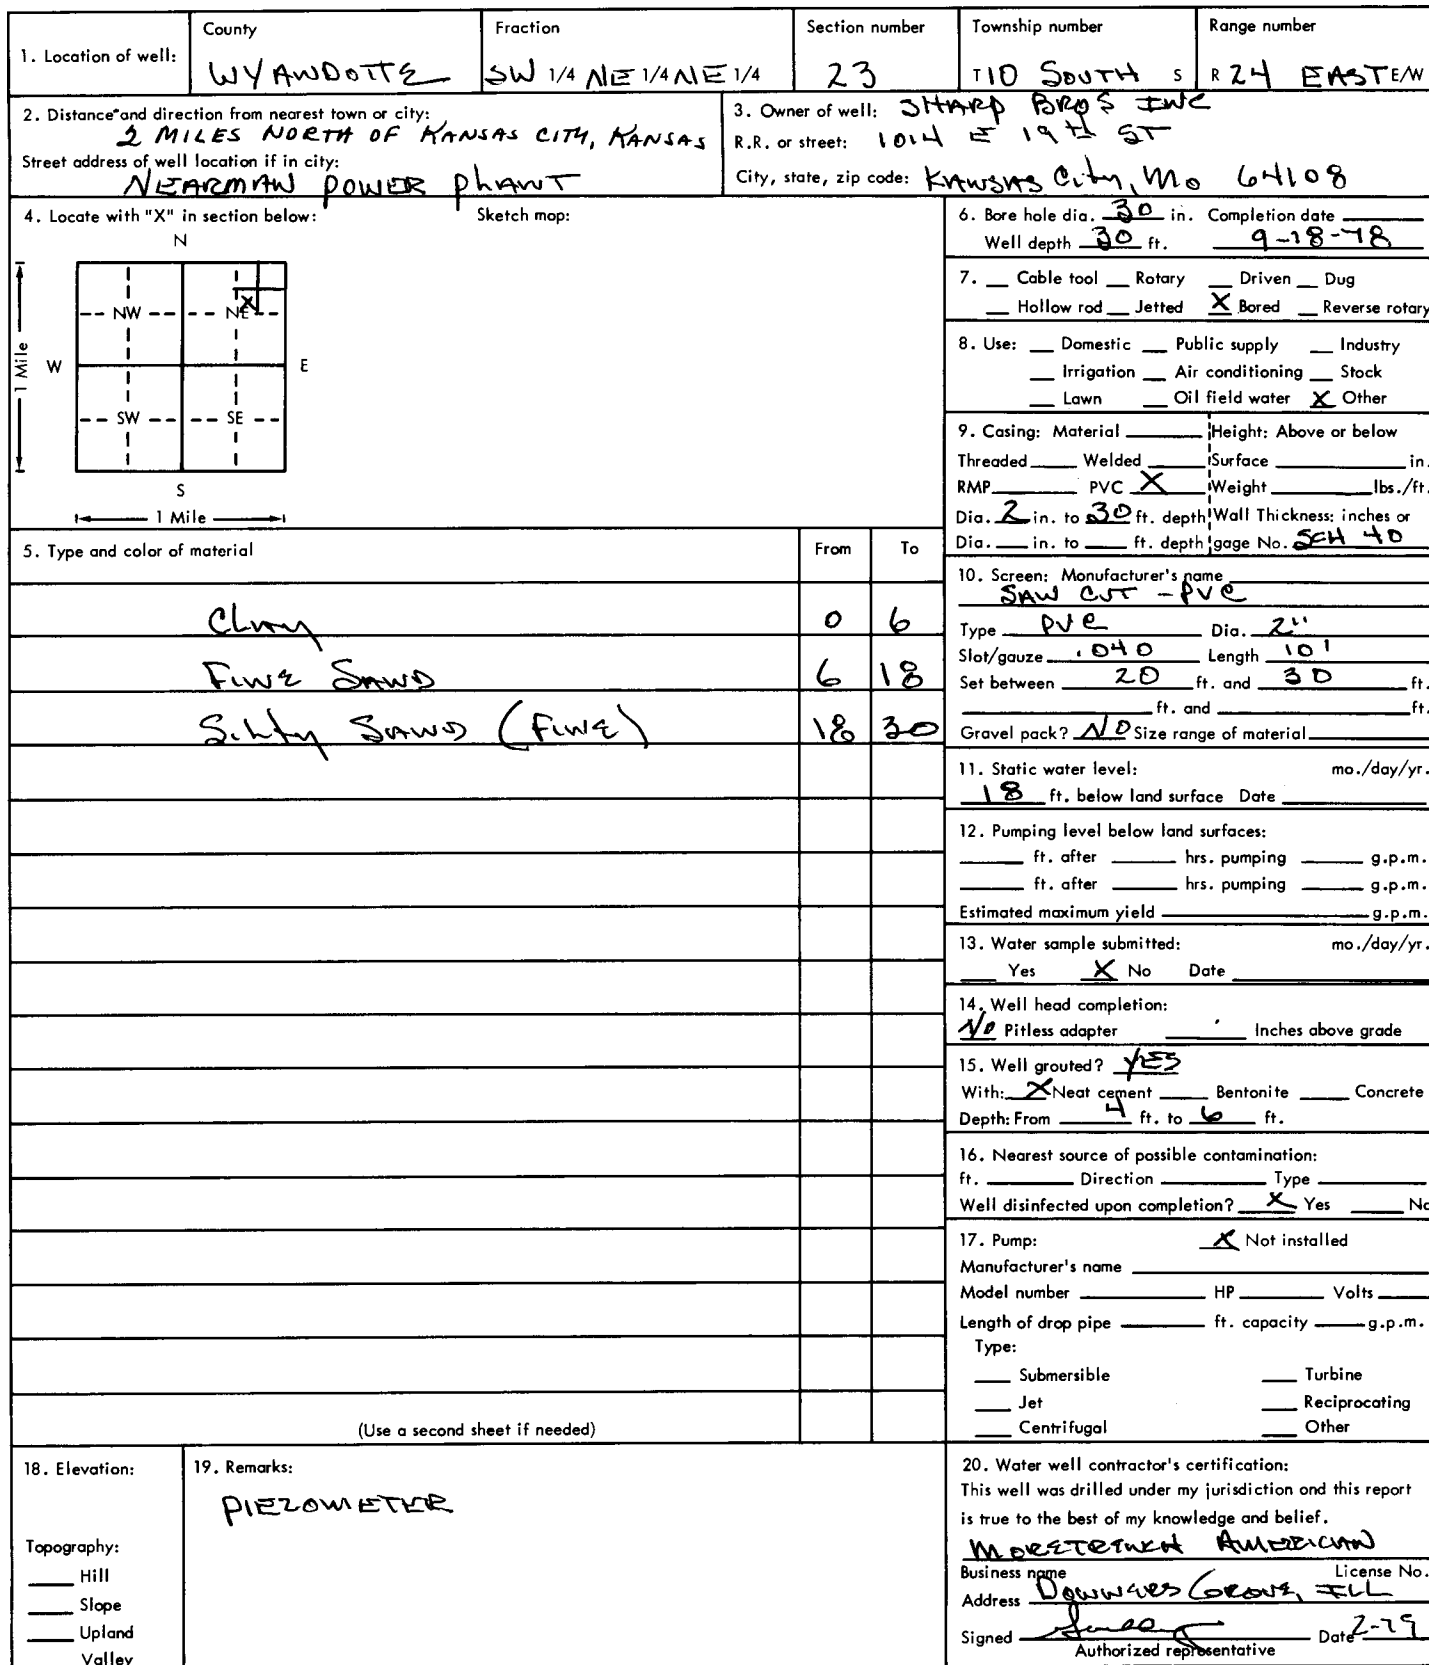 1. Location of well:
County
WYANDOTTE
Fraction
SW 1/4 NE 1/4 NE 1/4
Section number
23
Township number
T 10 SOUTH S
Range number
R 24 EAST E/W
2. Distance and direction from nearest town or city:
2 MILES NORTH OF KANSAS CITY, KANSAS
Street address of well location if in city:
NEARMAN POWER PLANT
3. Owner of well: SHARP BROS INC
R.R. or street: 1014 E 19th ST
City, state, zip code: KANSAS City, Mo 64108
4. Locate with "X" in section below:
Sketch map:
N
NW NE
X
W E
1 Mile
SW SE
S
1 Mile
5. Type and color of material From To
Clay 0 6
FINE SAND 6 18
Silty SAND (FINE) 18 30
(Use a second sheet if needed)
6. Bore hole dia. 30 in. Completion date
Well depth 30 ft. 9-18-78
7. Cable tool Rotary Driven Dug
Hollow rod Jetted X Bored Reverse rotary
8. Use: Domestic Public supply Industry
Irrigation Air conditioning Stock
Lawn Oil field water X Other
9. Casing: Material Height: Above or below
Threaded Welded Surface in.
RMP PVC X Weight lbs./ft.
Dia. 2 in. to 30 ft. depth Wall Thickness: inches or
Dia. in. to ft. depth gage No. SCH 40
10. Screen: Manufacturer's name
SAW CUT - PVC
Type PVC Dia. 2"
Slot/gauze .040 Length 10'
Set between 20 ft. and 30 ft.
ft. and ft.
Gravel pack? NO Size range of material
11. Static water level: mo./day/yr.
18 ft. below land surface Date
12. Pumping level below land surfaces:
ft. after hrs. pumping g.p.m.
ft. after hrs. pumping g.p.m.
Estimated maximum yield g.p.m.
13. Water sample submitted: mo./day/yr.
Yes X No Date
14. Well head completion:
NO Pitless adapter Inches above grade
15. Well grouted? YES
With: X Neat cement Bentonite Concrete
Depth: From 4 ft. to 6 ft.
16. Nearest source of possible contamination:
ft. Direction Type
Well disinfected upon completion? X Yes No
17. Pump: X Not installed
Manufacturer's name
Model number HP Volts
Length of drop pipe ft. capacity g.p.m.
Type:
Submersible Turbine
Jet Reciprocating
Centrifugal Other
18. Elevation:
Topography:
Hill
Slope
Upland
Valley
19. Remarks:
PIEZOMETER
20. Water well contractor's certification:
This well was drilled under my jurisdiction and this report
is true to the best of my knowledge and belief.
MORETRENCH AMERICAN
Business name License No.
Address DOWNERS GROVE, ILL
Signed Date 2-79
Authorized representative